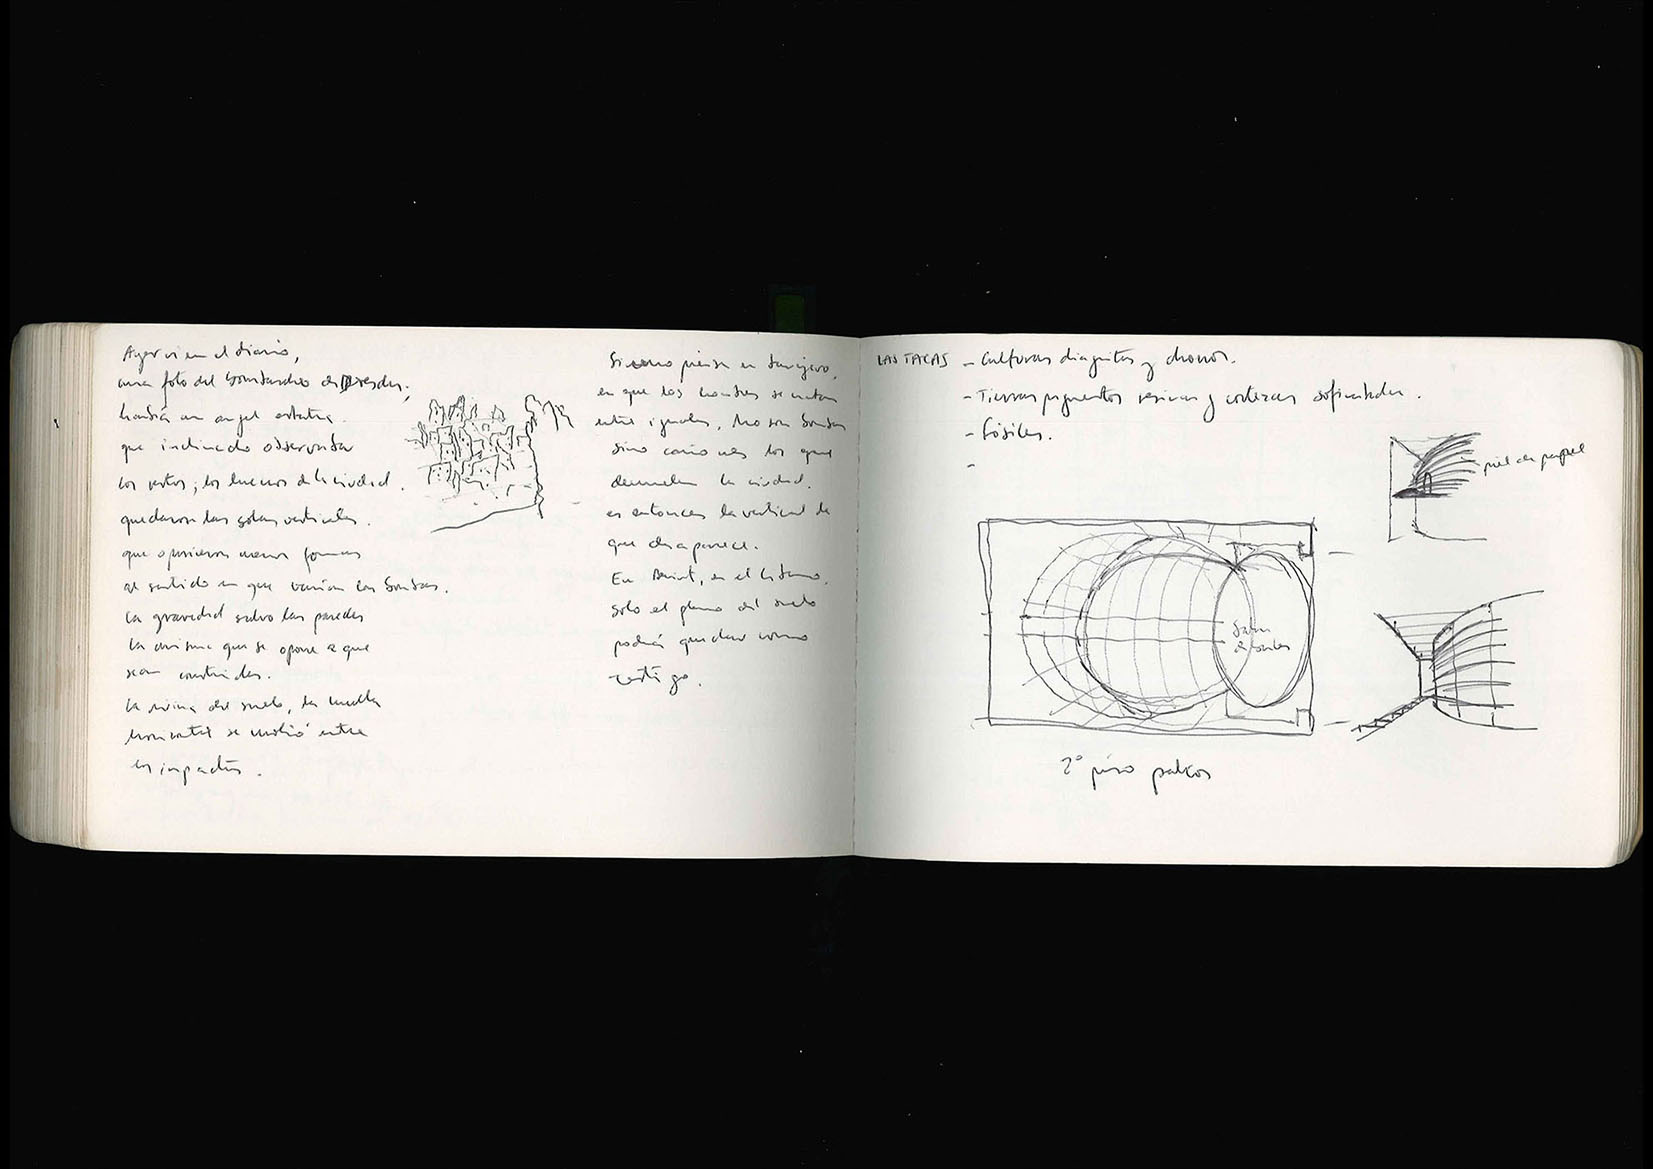 Ayer vi en el diario,
una foto del bombardeo de Dresden;
había un angel estatua
que inclinado observaba
los restos, los huesos de la ciudad.
quedaron las solas verticales.
que opusieron menos
al sentido en que venían las bombas.
la gravedad salvo las paredes
la misma que se opone a que
sean construidas.
la ruina del suelo, la huella
horizontal se molió entre
los impactos.
Si uno piensa en Sarajevo,
en que los hombres se matan
entre iguales, no son bombas
sino cañones los que
demuelen la ciudad.
es entonces la vertical la
que desaparece.
En Beirut, en el Líbano,
solo el plano del suelo
podrá quedar como
testigo.
LAS TACAS - Culturas diaguitas y chonos.
- Tierras pigmentos resinas y cortezas
- Fósiles.
-
piel de papel
2º piso palcos